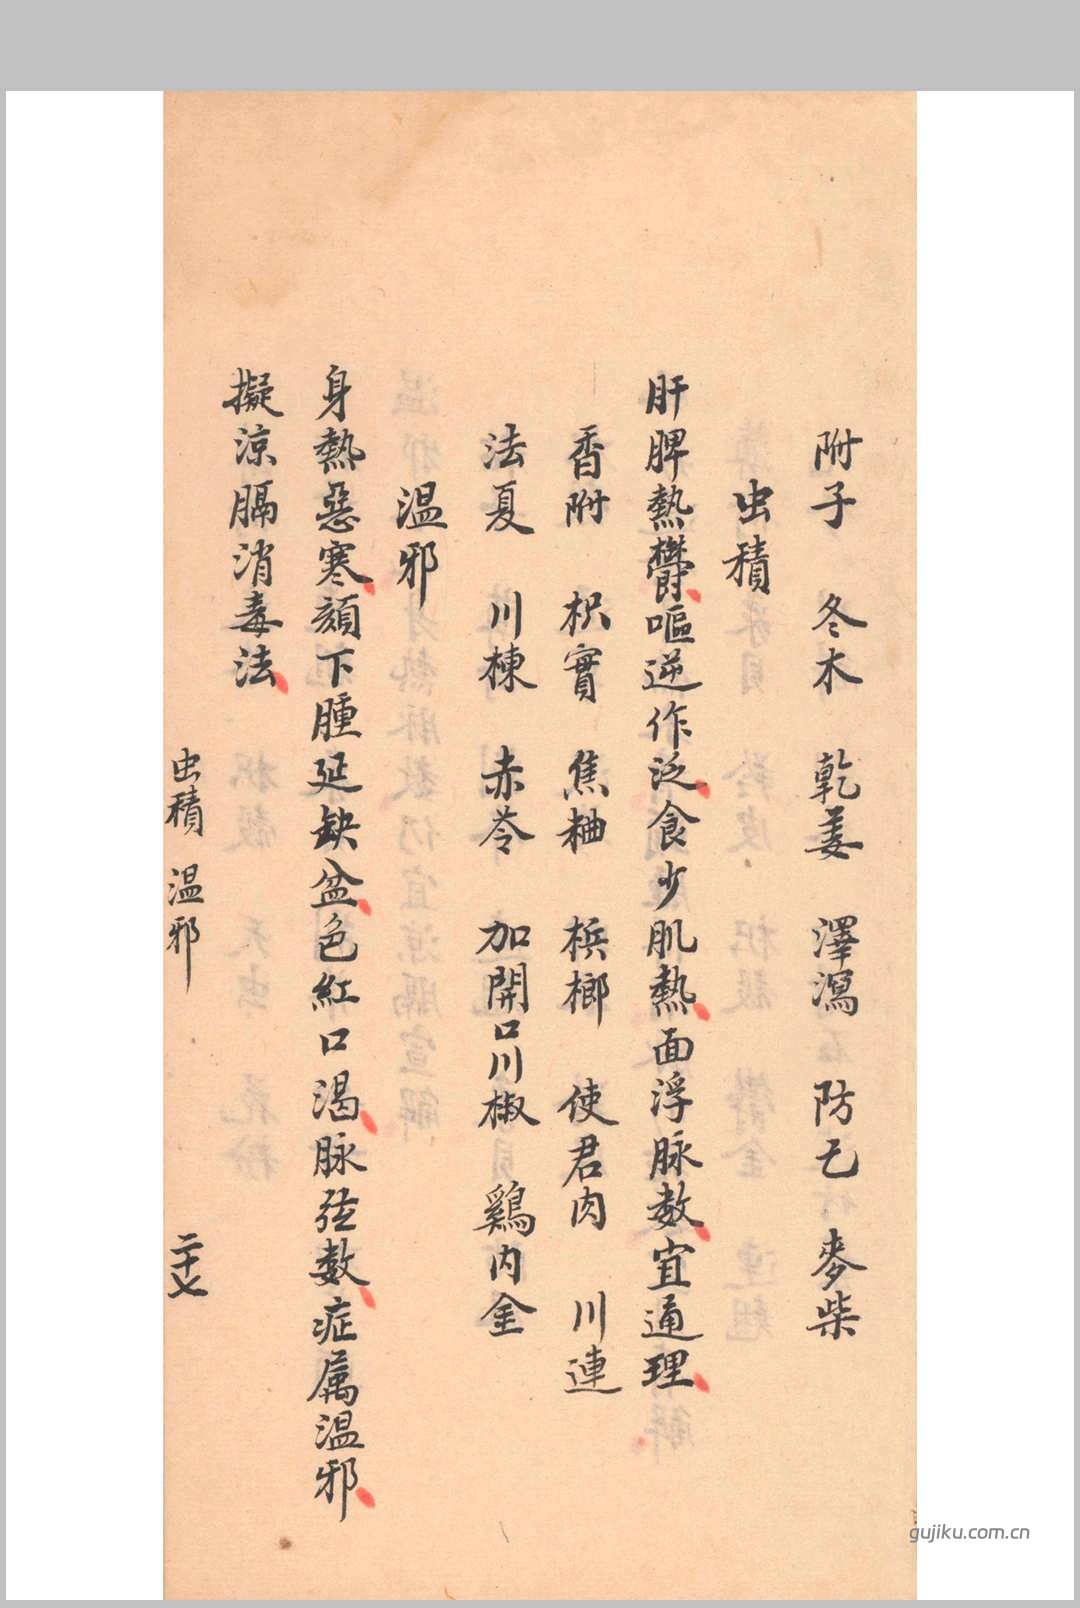 附子 冬木 乾姜 澤瀉 防己 麥柴
虫積
肝脾熱欎嘔逆作泛食少肌熱面浮脉数宜通理
香附 枳實 焦粬 梹榔 使君肉 川連
法夏 川楝 赤苓 加開口川椒 鷄内金
温邪
身熱惡寒頦下腫延缺盆色紅口渴脉弦数症属温邪
擬涼膈消毒法
虫積 温邪 二十七
gujiku.com.cn